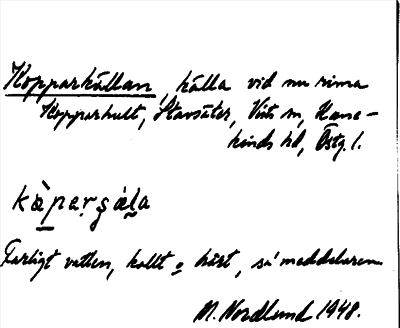 Kopparkällan, källa vid nu rivna
Kopparhult, Stavsäter, Vists sn, Hane-
kinds hd, Östg. l.
kàparʂǽla
Farligt vatten, kallt o hårt, sa meddelaren
M. Nordlund 1948.